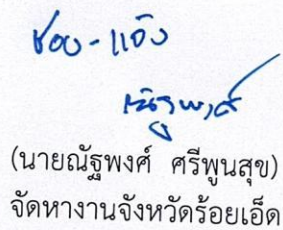 ชอบ - แจ้ง
ณัฐพงศ์
(นายณัฐพงศ์ ศรีพูนสุข)
จัดหางานจังหวัดร้อยเอ็ด